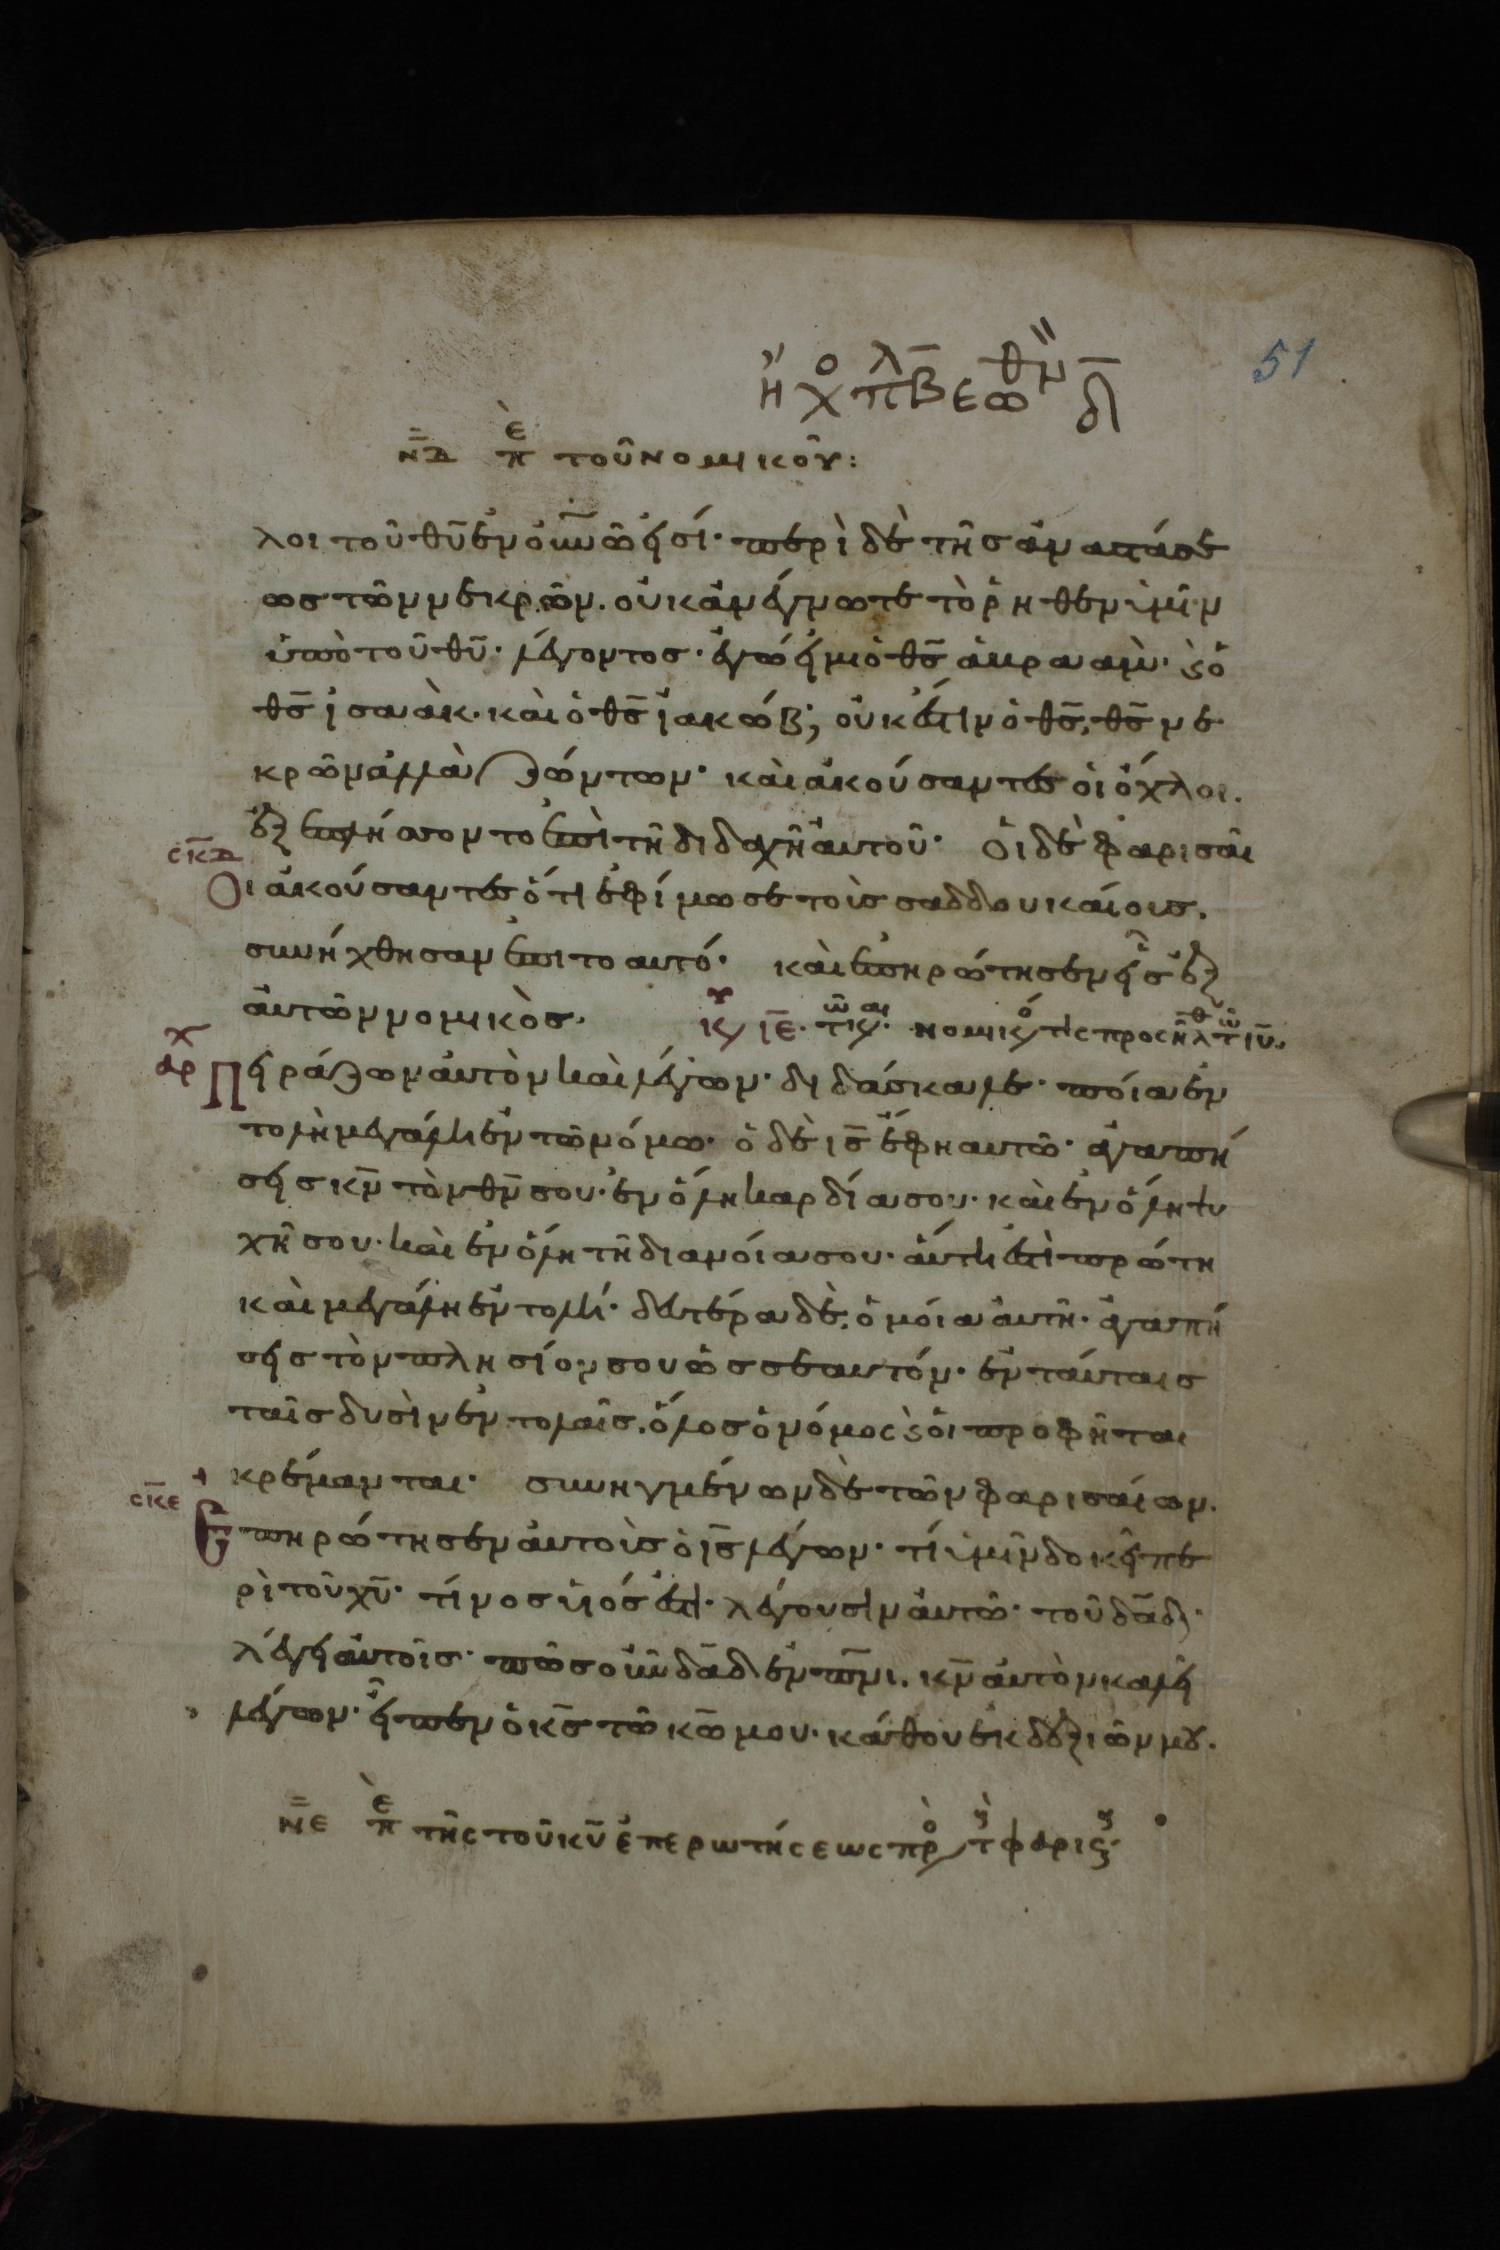 51
ν̄δ̄ πὲ τοῦ νομικοῦ:
λοι τοῦ θῦ ἐν οὐνω εἰσί· περὶ δὲ τῆς ἀναστάσε
ως τῶν νεκρῶν. οὐκ ἀνέγνωτε τὸ ῥηθεν ὑμῖν
ὑπὸ τοῦ θῦ· λέγοντος· ἐγώ εἰμι ὁ θς̄ ἀβρααμ· ϗ ὁ
θς̄ ἰσαὰκ· καὶ ὁ θς̄ ἰακώβ; οὐκ ἔστιν ὁ θς̄, θς̄ νε
κρῶν ἀλλὰ ζώντων· καὶ ἀκούσαντες οἱ ὄχλοι.
ἐξεπλήσσοντο ἐπὶ τῆ διδαχῆ αὐτοῦ· Οἱ δὲ φαρισαῖ
σκ̄δ
Οι ἀκούσαντες ὅτι ἐφίμωσε τοὶς σαδδουκαίοις.
συνήχθησαν ἐπι το αυτό· καὶ ἐπηρώτησεν εἷς ἐξ
ἀυτῶν νομικὸς. κυ ῑε. τῶ καιῶ. νομικός τὶς προσῆλθ τῶ ιῡ.
αρχ
Πειράζων ἀυτὸν καὶ λέγων· διδάσκαλε· ποία ἐν
τολὴ μεγάλη ἐν τῶ νόμω· ὁ δὲ ις̄ ἔφη αυτῶ· ἀγαπή
σεις κν̄ τὸν θν̄ σου· ἐν ὅλη καρδία σου· καὶ ἐν ὅλη ψυ
χῆ σου· καὶ ἐν ὅλη τῆ διανοία σου· αὕτη ἐστὶ πρώτη
καὶ μεγάλη ἐντολή· δευτέρα δὲ. ὁμοία ἀυτῆ· ἀγαπή
σεις τὸν πλησίον σου ὡς σεαυτόν· ἐν ταύταις
ταῖς δυσὶν ἐντολαῖς. ὅλος ὁ νόμος ϗ ὁι προφῆται
κρέμανται· συνηγμένων δὲ τῶν φαρισαίων.
σκ̄ε
Επηρώτησεν ἀυτοὶς ὁ ις̄ λέγων· τί ὑμῖν δοκεῖ πε
ρὶ τοῦ χῦ· τίνος υἱός ἐστι· λέγουσιν ἀυτῶ· τοῦ δᾱδ·
λέγει ἀυτοῖς· πῶς οὖν δᾱδ ἐν πνι. κν̄ ἀυτὸν καλεῖ
λέγων· εἶπεν ὁ κς̄ τῶ κω̄ μου· κάθου ἐκ δεξιῶν μου.
ν̄ε πὲ τῆς τοῦ κῡ ἐπερωτήσεως πρὸ τοὺ φαρις·